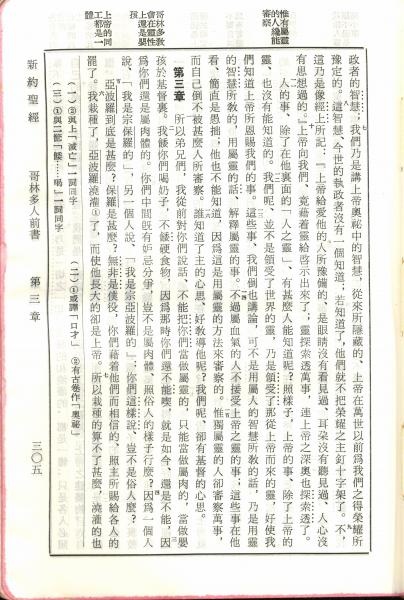 惟有屬靈的人纔能審察
哥林多教會在靈性上還是嬰孩
上帝的同工都是一體
政者的智慧;我們乃是講上帝奧祕中的智慧,從來所隱藏的,上帝在萬世以前爲我們之得榮耀所
豫定的。這智慧、今世的執政者沒有一個知道,若知道了,他們就不把榮耀之主釘十字架了。不,
這乃是像經上所記:『上帝給愛他的人所豫備的、是眼睛沒有看見過、耳朵沒有聽見過、人心沒
有思想過的。』上帝向我們、竟藉着靈給啓示出來了;靈探索透萬事,連上帝之深奧也探索透了。
人的事、除了在他裏面的「人之靈」、有甚麼人能知道呢?照樣子,上帝的事、除了上帝的
靈、也沒有能知道的。我們呢、並不是領受了世界的靈,乃是領受了那從上帝而來的靈,好使我
們知道上帝所恩賜我們的事。這些事、我們倒也講論,可不是用屬人的智慧所教的話,乃是用靈
的智慧所教的,用屬靈的話、解釋屬靈的事。不過屬血氣的人不接受上帝之靈的事;這些事在他
看、簡直是愚拙;他也不能知道,因爲這是用屬靈的方法來審察的。惟獨屬靈的人卻審察萬事,
而自己倒不被甚麼人所審察。誰知道了主的心思、好教導他呢?我們呢、卻有基督的心思。
第三章 所以弟兄們,我從前對你們說話、不能把你們當做屬靈的,只能當做屬肉的,當做嬰
孩於基督裏。我餧你們喝奶子,不餧硬食物,因爲那時你們還不能喫,就是如今、還是不能,因
爲你們還是屬肉體的。你們中間旣有妒忌分爭,豈不是屬肉體、照俗人的樣子行麼?因爲一個人
說、「我是宗保羅的」,另一個人說、「我是宗亞波羅的」;你們這樣說、豈不是俗人麼?
亞波羅到底是甚麼?保羅是甚麼?無非是僕役,你們藉着他們而相信的,照主所賜給各人的
罷了。我栽種了,亞波羅澆灌①了,而使他長大的卻是上帝。所以栽種的算不了甚麼,澆灌的也
(一)①或譯「口才」 ②有古卷作「奧祕」
(二)③與上「滅亡」一詞同字
(三)①與二節「餧……喝」一詞同字
新約聖經 哥林多人前書 第三章 三〇五